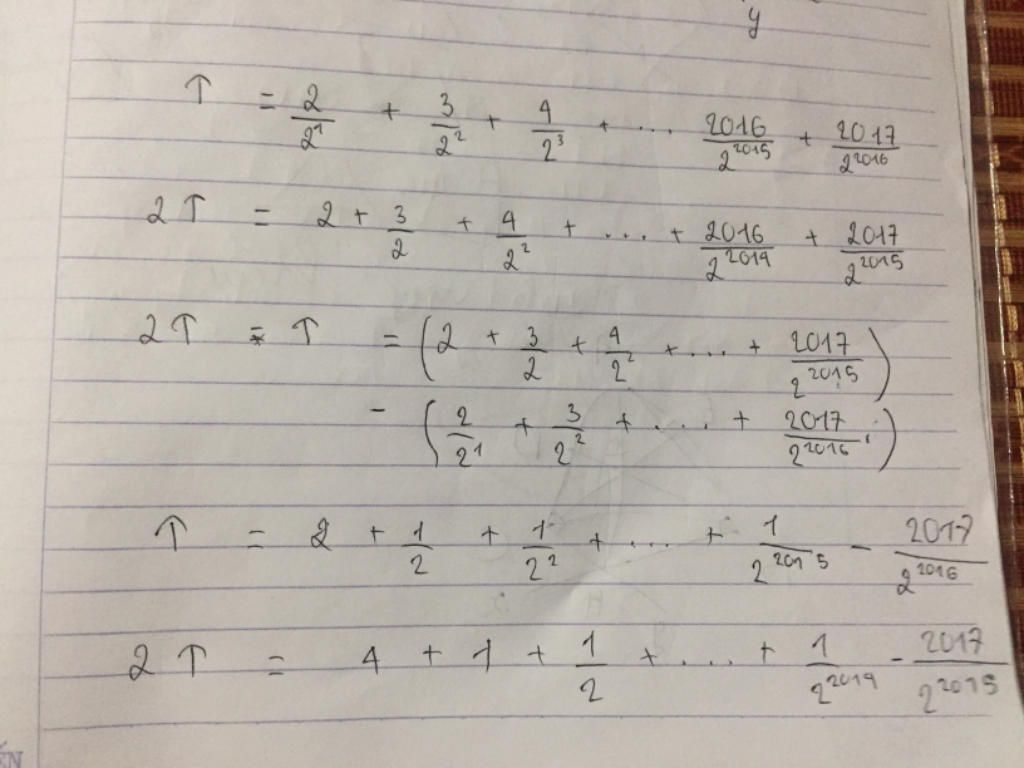 y
T = 2/2^1 + 3/2^2 + 4/2^3 + ... 2016/2^2015 + 2017/2^2016
2T = 2 + 3/2 + 4/2^2 + ... + 2016/2^2014 + 2017/2^2015
2T - T = (2 + 3/2 + 4/2^2 + ... + 2017/2^2015)
- (2/2^1 + 3/2^2 + ... + 2017/2^2016)
T = 2 + 1/2 + 1/2^2 + ... + 1/2^2015 - 2017/2^2016
2T = 4 + 1 + 1/2 + ... + 1/2^2014 - 2017/2^2015